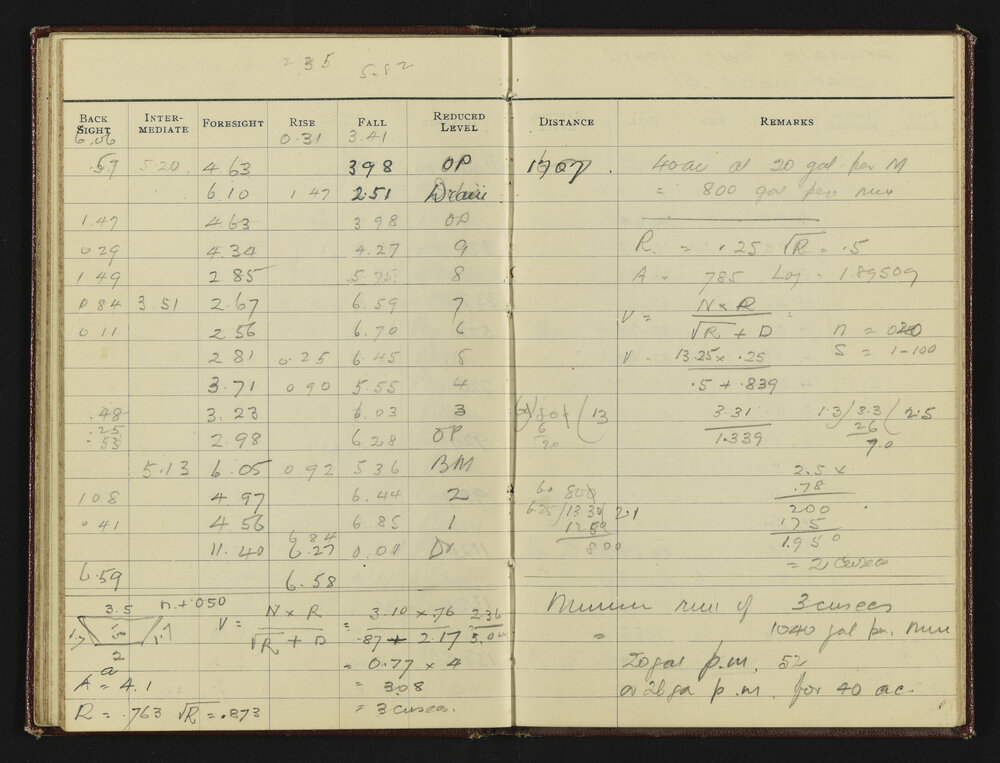 235
5.82
BACK SIGHT INTER-MEDIATE FORESIGHT RISE FALL REDUCED LEVEL DISTANCE REMARKS
6.06 0.31 3.41
.57 5.20 4.63 398 OP 40 ac at 20 gal per M
6.10 1 47 2.51 Drain = 800 gal per min
1.47 4.63 3 98 OP
0 29 4.34 4.27 9 R = .25 √R = .5
1 49 2 85 5.75 8 A = 785 Log = 1.89509
0 84 3.51 2.67 6.59 7 V = N x R
0 11 2 56 6.70 6 √R + D n = 020
2 81 0.25 6.45 5 V = 13.25 x .25 S = 1-100
3.71 0 90 5.55 4 .5 + .839
.48 3.23 6.03 3 13 3.31 1.3/3.3(2.5
.25 6 1.339 26
.53 2.98 6 28 OP 20 7.0
5.13 6.05 0 92 5 36 BM 2.5 x
1 08 4 97 6.44 2 60 800 .78
0 41 4 56 6.85 1 6.25/13 30(2.1 200
6 84 1250 175
11.40 6.27 0.01 Dr 800 1.950
6.59 6.58 = 2 cusecs
3.5 n + 050 N x R 3.10 x .76 2.36
V = √R + D = .87 + 2.17 3.04
2 = 0.77 x 4
a
A = 4.1 = 308
R = .763 √R = .873 = 3 cusecs.
run of 3 cusecs
= 1040 gal per min
20 gal p.m. 52
or 26 ga p.m. for 40 ac.